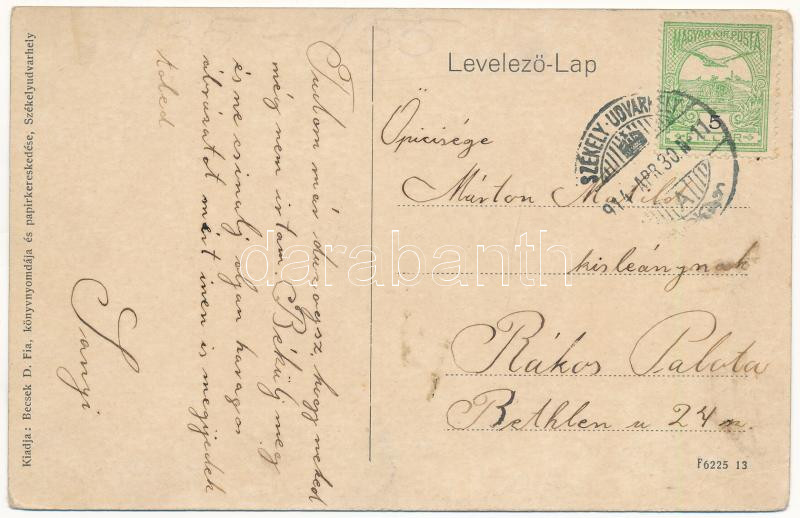 Levelező-Lap
MAGYAR KIR. POSTA
SZÉKELY-UDVARHELY
914 APR. 30. N. 11 5
A
Őpicisége
Márton
kisleánynak
Rákos Palota
Bethlen u 24 sz.
F6225 13
Tudom már duzogsz, hogy neked
még nem irtam. Békülj meg
és ne csinalj oljan haragos
ábrázatot mert inen is megijedek
tőled
Sanyi
Kiadja: Becsek D. Fia, könyvnyomdája és papirkereskedése, Székelyudvarhely
darabanth